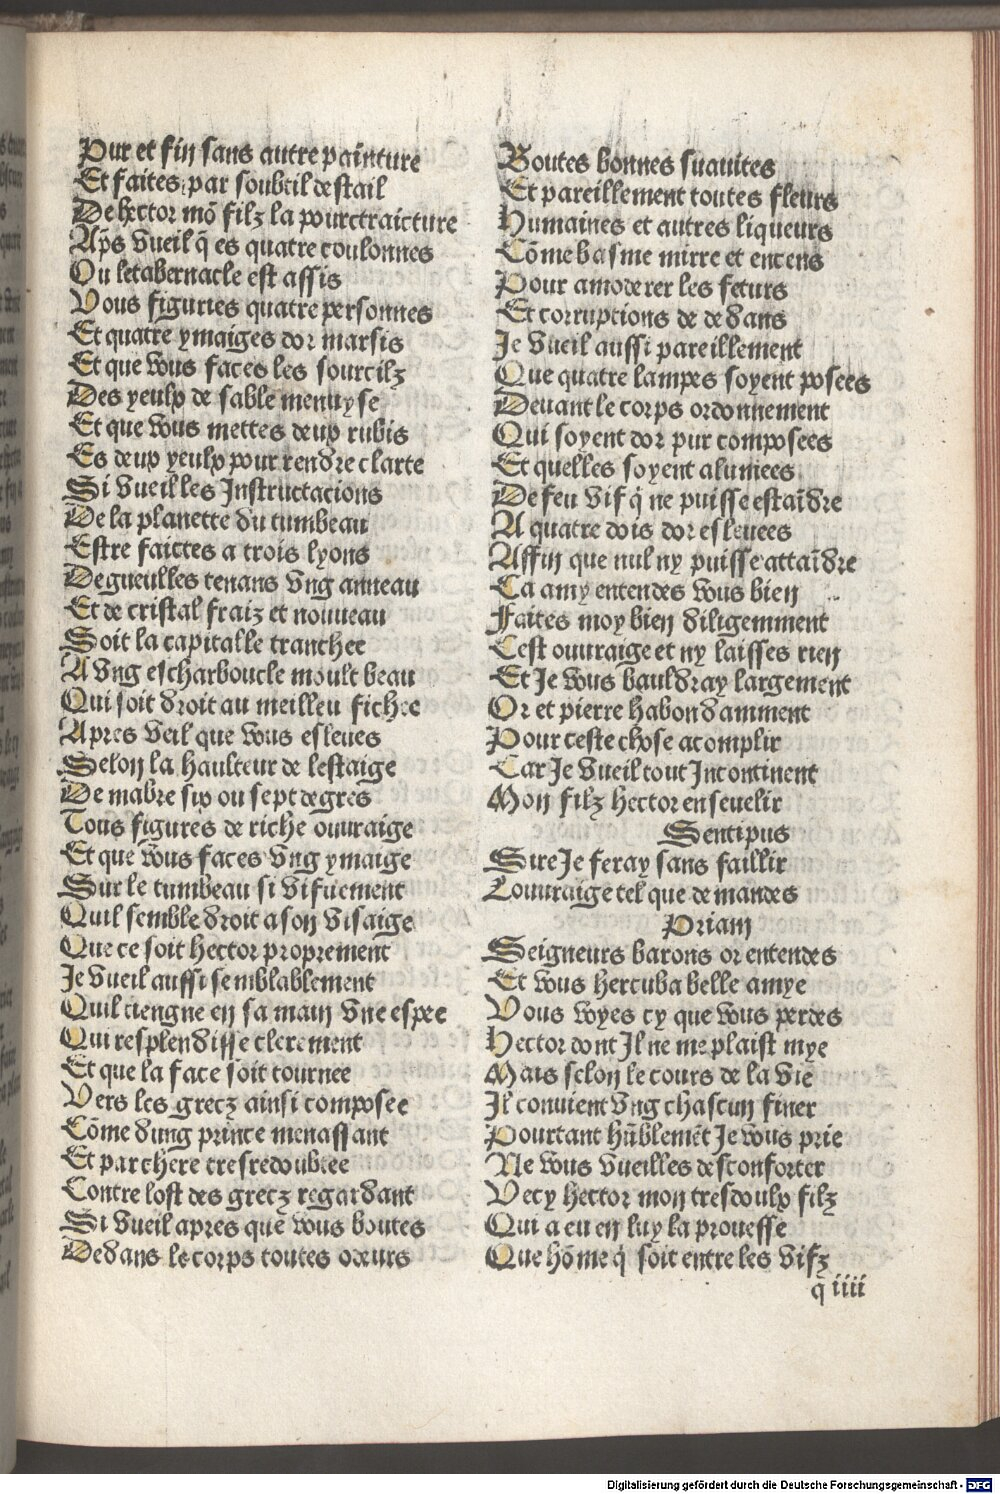 Pur et fin sans autre painture
Et faites par soubtil destail
De hector mõ filz la pourctraicture
Ap̃s vueil q̃ es quatre coulonnes
Ou letabernacle est assis
Vous figuries quatre personnes
Et quatre ymaiges dor marsis
Et que vous faces les sourcilz
Des yeulx de sable menuyse
Et que vous mettes deux rubis
Es deux yeulx pour rendre clarte
Si vueil les Instructacions
De la planette du tumbeau
Estre faictes a trois lyons
De gueulles tenans vng anneau
Et de cristal fraiz et nouueau
Soit la capitalle tranchee
A vng escharboucle moult beau
Qui soit droit au meilleu fichee
Apres veil que vous esleues
Selon la haulteur de lestaige
De mabre six ou sept degres
Tous figures de riche ouuraige
Et que vous faces vng ymaige
Sur le tumbeau si vifuement
Quil semble droit a son visaige
Que ce soit hector proprement
Je vueil aussi semblablement
Quil tiengne en sa main vne espee
Qui resplendisse clerement
Et que la face soit tournee
Vers les grecz ainsi composee
Cõme dung prince menassant
Et par chere tresredoubtee
Contre lost des grecz regardant
Si vueil apres que vous boutes
Dedans le corps toutes odeurs
Boutes bonnes suauites
Et pareillement toutes fleurs
Humaines et autres liqueurs
Cõme basme mirre et encens
Pour amoderer les feturs
Et corruptions de dedans
Je vueil aussi pareillement
Que quatre lampes soyent posees
Deuant le corps ordonnement
Qui soyent dor pur composees
Et quelles soyent alumees
De feu vif q̃ ne puisse estaĩdre
A quatre dois dor esleuees
Affin que nul ny puisse attaĩdre
Ca amy entendes vous bien
Faites moy bien diligemment
Cest ouuraige et ny laisses rien
Et Je vous bauldray largement
Or et pierre habondamment
Pour ceste chose acomplir
Car Je vueil tout Incontinent
Mon filz hector enseuelir
Sentipus
Sire Je feray sans faillir
Louuraige tel que demandes
Priam
Seigneurs barons or entendes
Et vous hercuba belle amye
Vous voyes cy que vous perdes
Hector dont Il ne me plaist mye
Mais selon le cours de la vie
Il conuient vng chascun finer
Pourtant hũblemẽt Je vous prie
Ne vous vueilles desconforter
Vecy hector mon tresdoulx filz
Qui a eu en luy la prouesse
Que hõme q̃ soit entre les vifz
q iiii
Digitalisierung gefördert durch die Deutsche Forschungsgemeinschaft - DFG